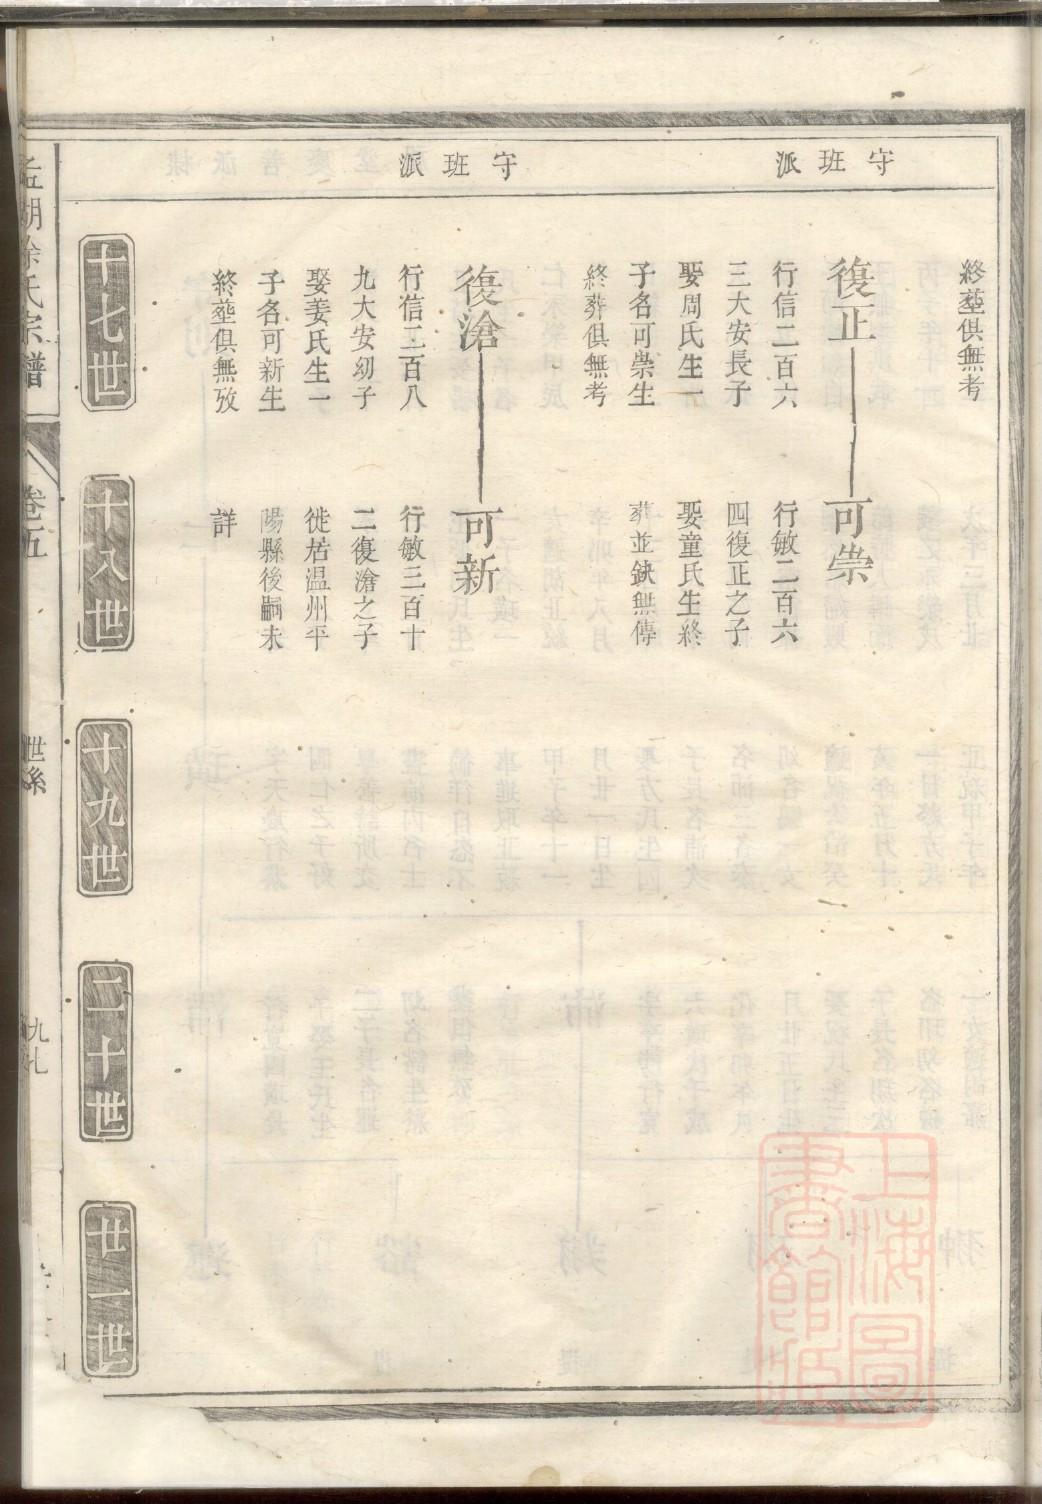 守班派
守班派
終塟俱無考
復正
行信二百六
三大安長子
娶周氏生一
子名可崇生
終葬俱無考
可崇
行敏二百六
四復正之子
娶童氏生終
葬並缺無傳
復滄
行信二百八
九大安幼子
娶姜氏生一
子名可新生
終塟俱無攷
可新
行敏三百十
二復滄之子
徙居温州平
陽縣後嗣未
詳
十七世
十八世
十九世
二十世
廿一世
孟湖徐氏宗譜
卷五
世系
九七
上海圖
書館藏